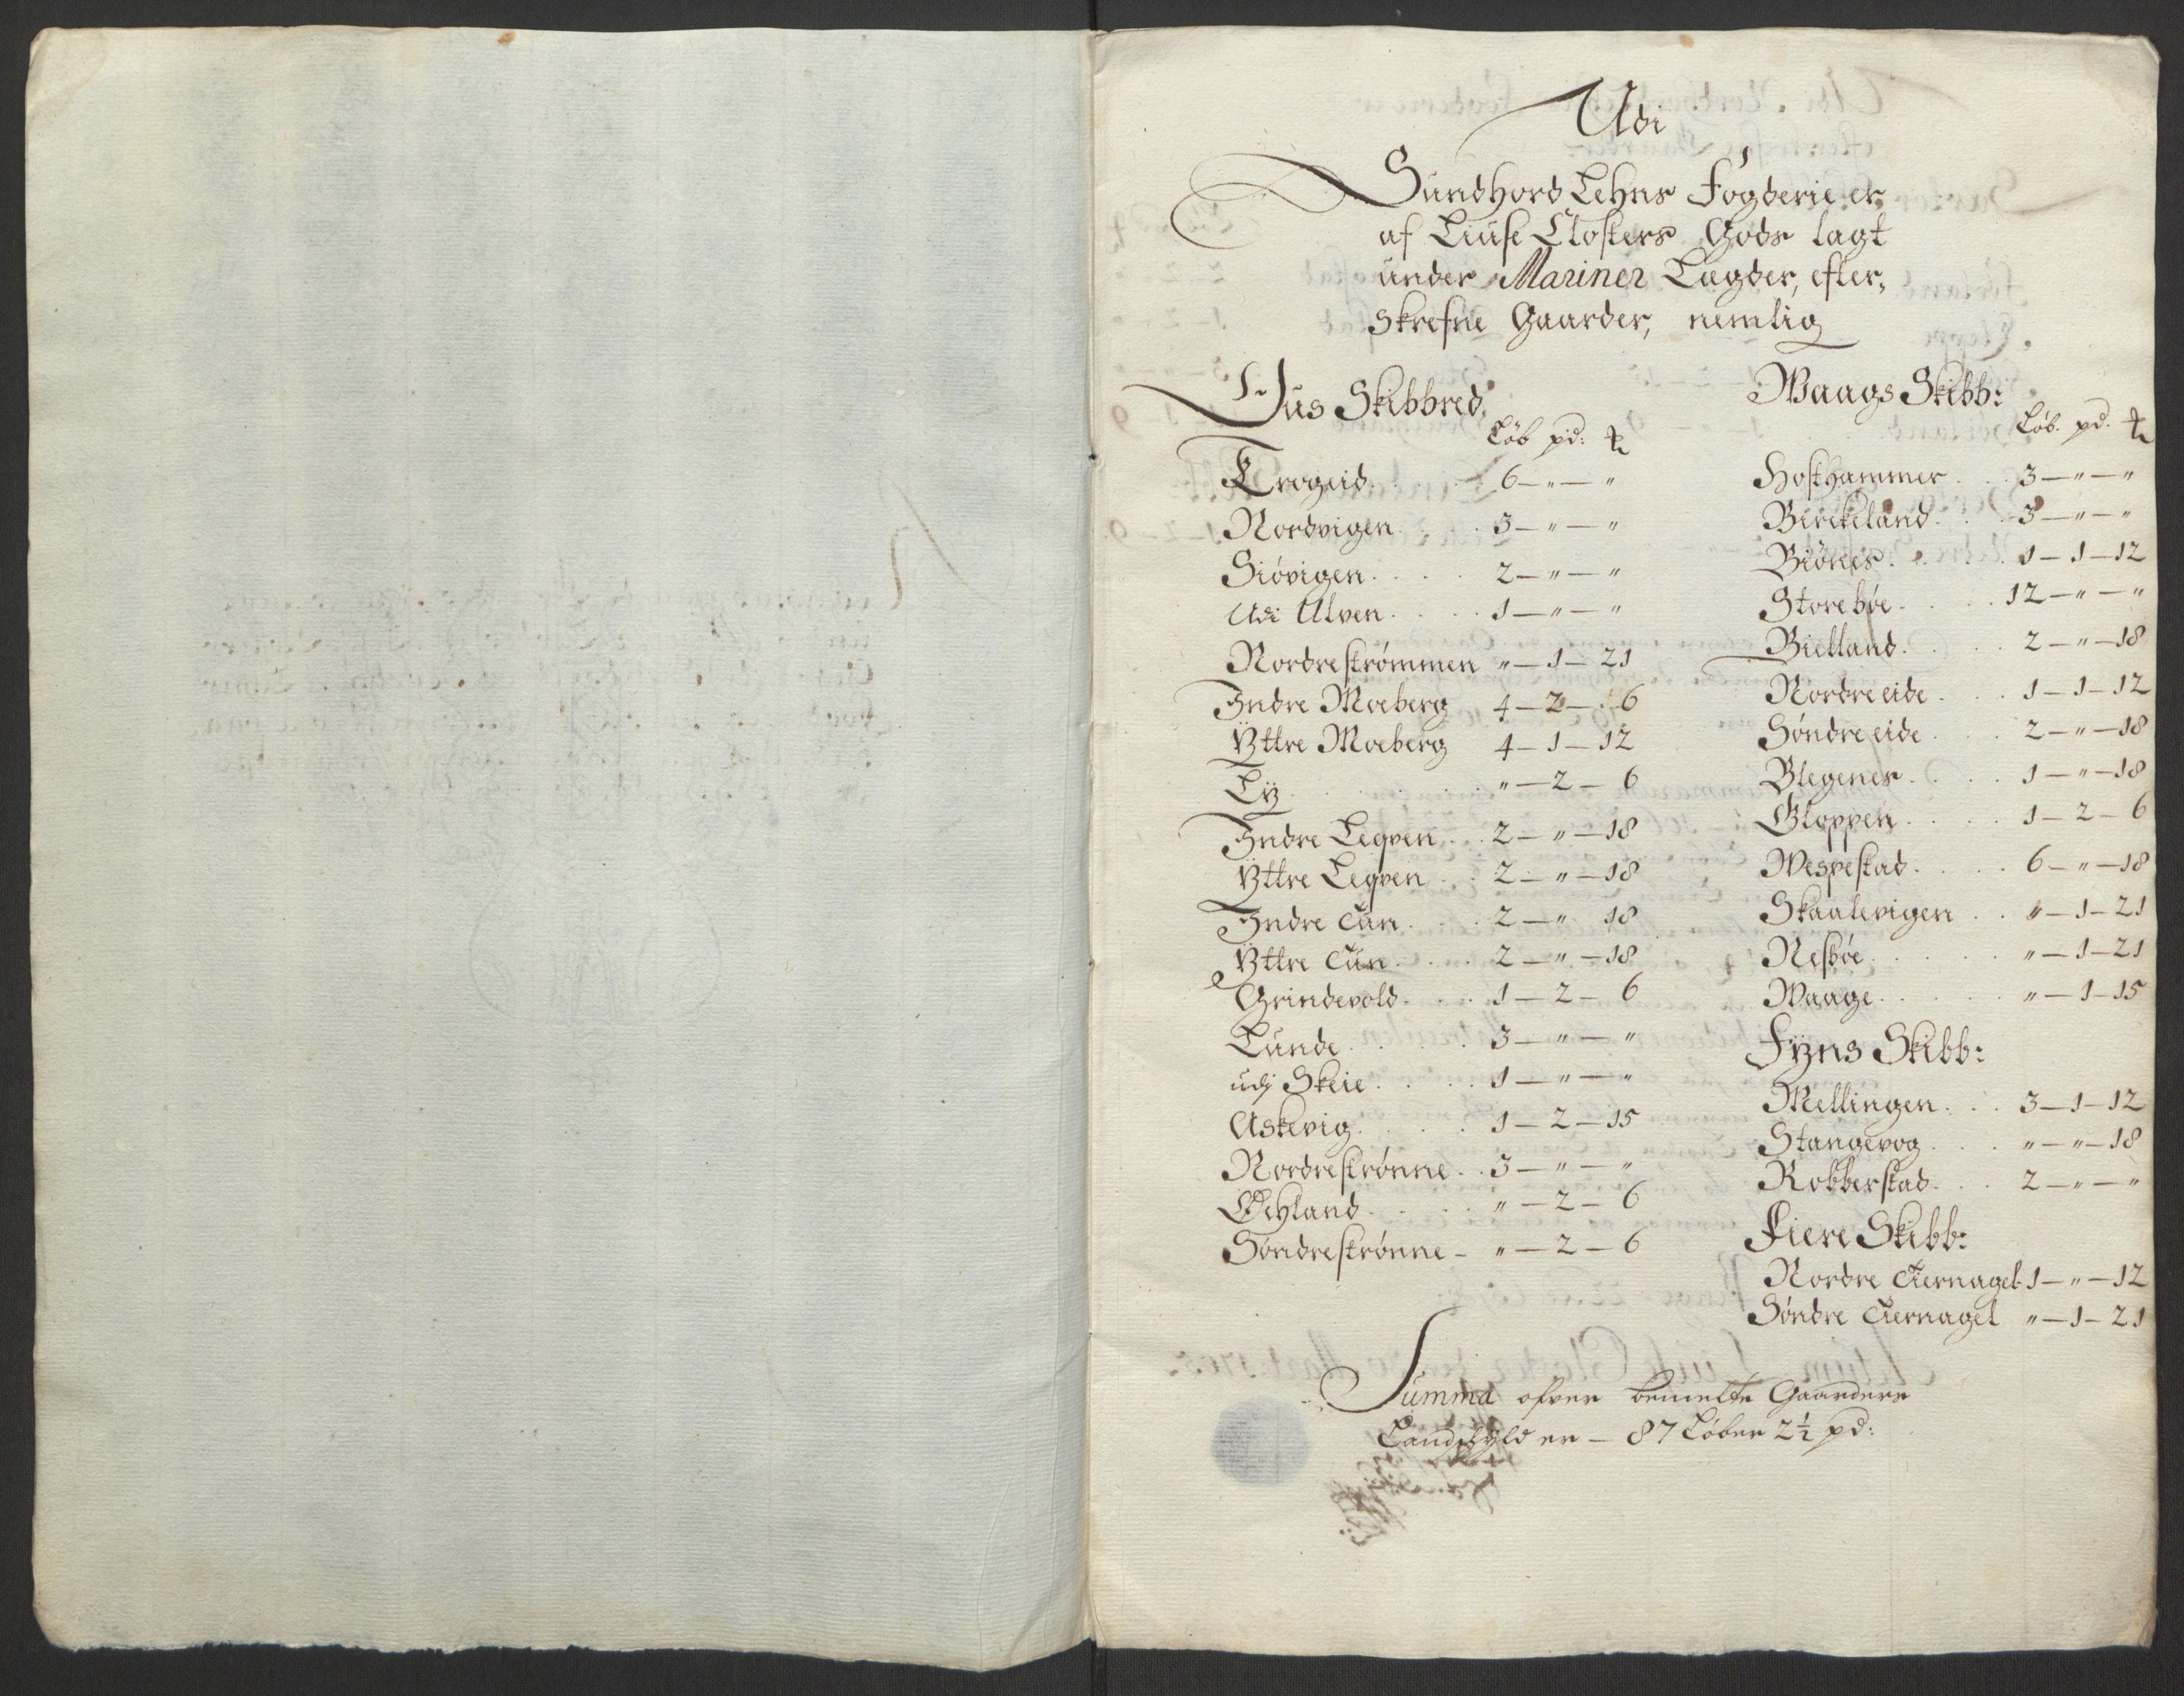 Udi
Sundhord Lehns Fogderie er,
af Liuse Closters Gods lagt
under Mariner Lægder, efter,
skrefne Gaarder, nemlig
Uus Skibbred,
Löb pd: ℔
Trogeid . . . 6 — " — "
Nordvigen . . . 3 — " — "
Siövigen . . . 2 — " — "
Udi Alven . . . 1 — " — "
Nordreströmmen " — 1 — 21
Indre Moeberg 4 — 2 — 6
Yttre Moeberg 4 — 1 — 12
Ly . . . " — 2 — 6
Indre Leqven . . 2 — " — 18
Yttre Leqven . . 2 — " — 18
Indre Tun . . . 2 — " 18
Yttre Tun . . . 2 — " — 18
Grindevold . . . 1 — 2 — 6
Lunde . . . 3 — " — "
udj Skeie . . . 1 — " — "
Askevig . . . 1 — 2 — 15
Nordreströnne . . 3 — " — "
Øehland . . . " — 2 — 6
Söndreströnne — " — 2 — 6
Waags Skibb:
Löb. pd. ℔
Hofthammer . . . 3 — " — "
Birckeland . . . 3 — " — "
Biönes . . . 1 — 1 — 12
Storeböe . . . 12 — " — "
Bielland . . . 2 — " — 18
Nordre eide . . . 1 — 1 — 12
Söndre eide . . . 2 — " — 18
Blegenes . . . 1 — " — 18
Gloppen . . . 1 — 2 — 6
Wespestad . . . 6 — " — 18
Skaalevigen . . " — 1 — 21
Nesböe . . . " — 1 — 21
Waage . . . " — 1 — 15
Fyens Skibb:
Mellingen . . . 3 — 1 — 12
Stangevog . . . " — " — 18
Robberstad . . . 2 — " — "
Fiere Skibb:
Nordre Tiernagel 1 — " — 12
Söndre Tiernagel " — 1 — 21
Summa ofven bemelte Gaarders
Landskyld er — 87 Löber 2½ pd: